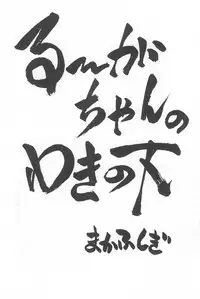 るーがちゃんの
わきの下
まかふしぎ